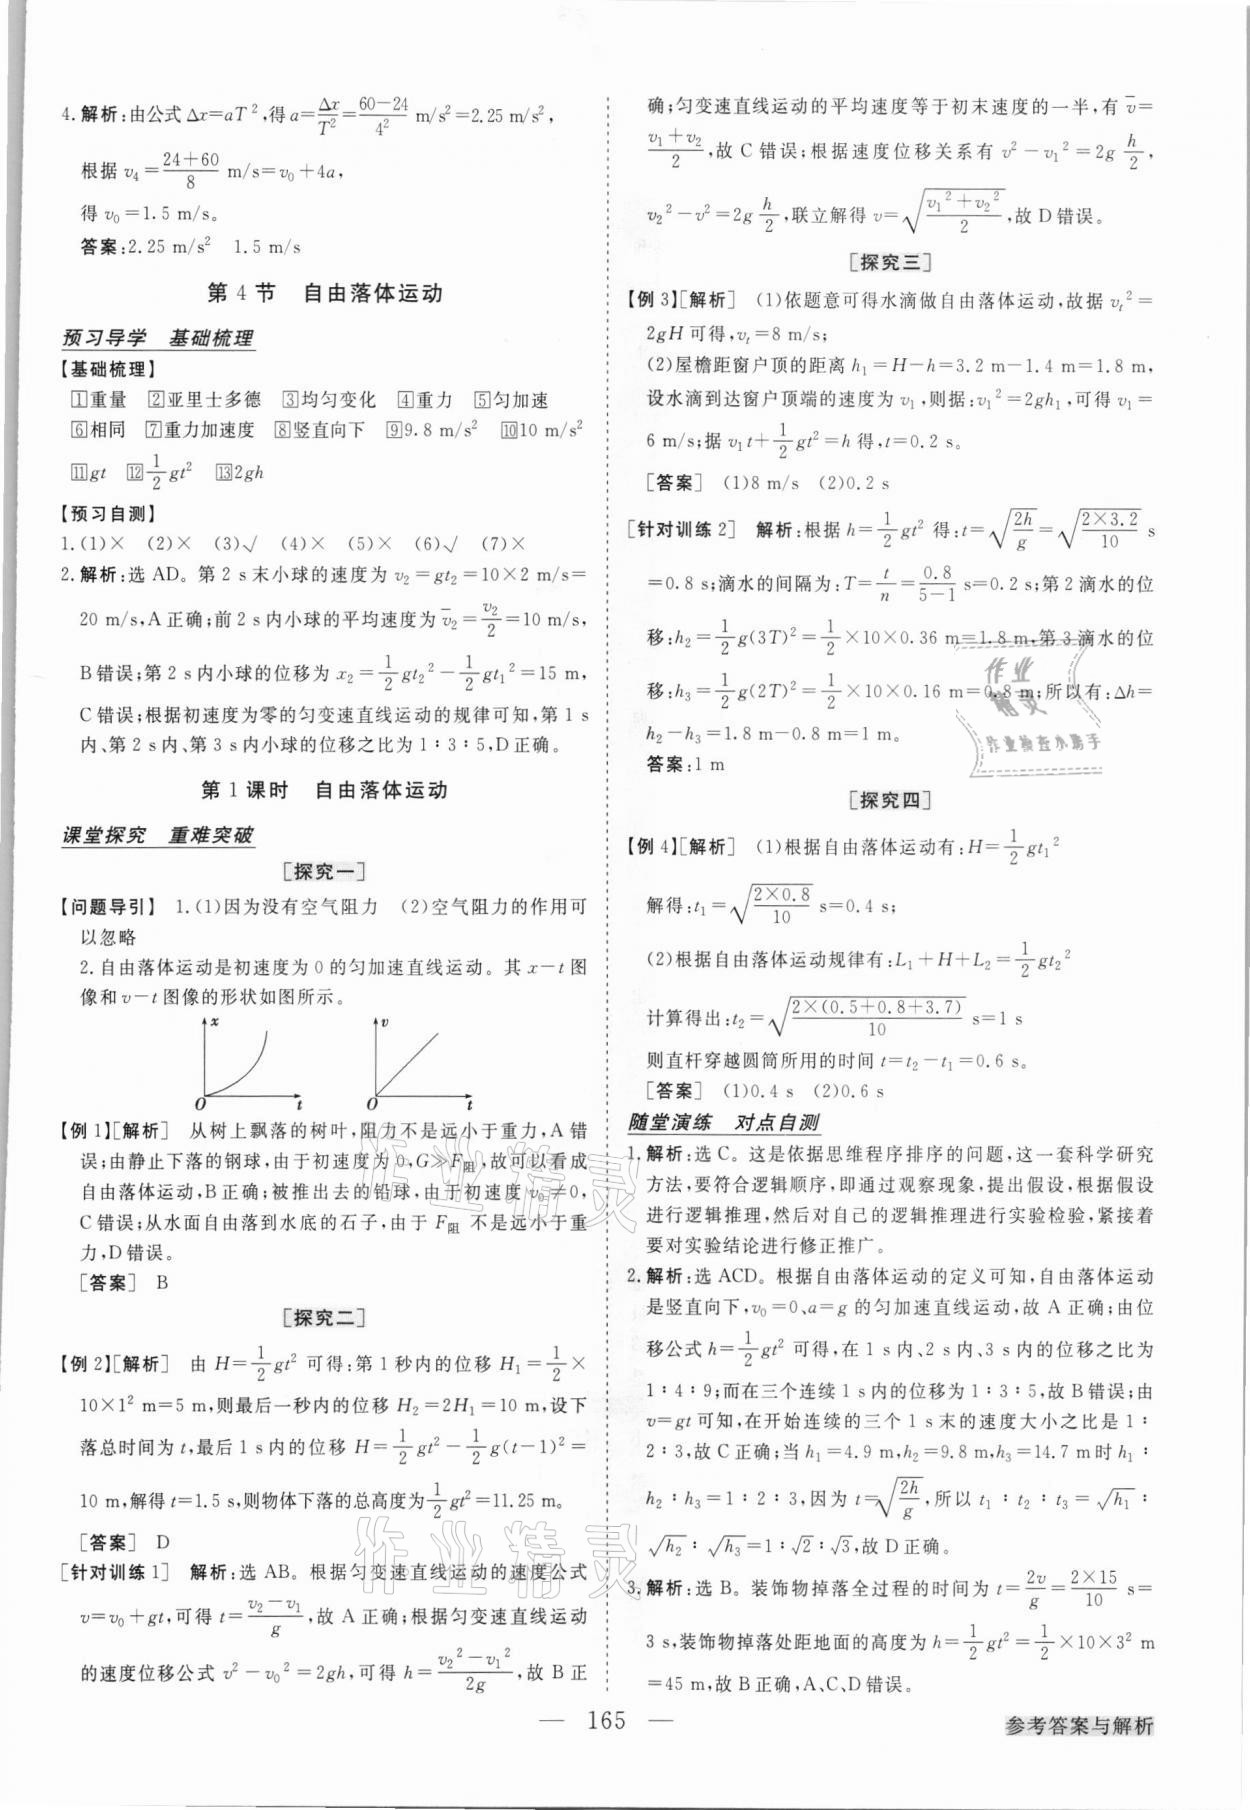 4.解析:由公式 Δx=aT²,得 a=Δx/T²=(60-24)/4² m/s²=2.25 m/s²,
根据 v₄=(24+60)/8 m/s=v₀+4a,
得 v₀=1.5 m/s。
答案:2.25 m/s² 1.5 m/s
第 4 节 自由落体运动
预习导学 基础梳理
【基础梳理】
1重量 2亚里士多德 3均匀变化 4重力 5匀加速
6相同 7重力加速度 8竖直向下 9 9.8 m/s² 10 10 m/s²
11 gt 12 1/2 gt² 13 2gh
【预习自测】
1.(1)× (2)× (3)√ (4)× (5)× (6)√ (7)×
2.解析:选 AD。第 2 s 末小球的速度为 v₂=gt₂=10×2 m/s=
20 m/s,A 正确;前 2 s 内小球的平均速度为 v̄₂=v₂/2=10 m/s,
B 错误;第 2 s 内小球的位移为 x₂=1/2 gt₂²-1/2 gt₁²=15 m,
C 错误;根据初速度为零的匀变速直线运动的规律可知,第 1 s
内、第 2 s 内、第 3 s 内小球的位移之比为 1∶3∶5,D 正确。
第 1 课时 自由落体运动
课堂探究 重难突破
[探究一]
【问题导引】 1.(1)因为没有空气阻力 (2)空气阻力的作用可
以忽略
2.自由落体运动是初速度为 0 的匀加速直线运动。其 x-t 图
像和 v-t 图像的形状如图所示。
x v
O t O t
【例 1】[解析] 从树上飘落的树叶,阻力不是远小于重力,A 错
误;由静止下落的钢球,由于初速度为 0,G≫F阻,故可以看成
自由落体运动,B 正确;被推出去的铅球,由于初速度 v₀≠0,
C 错误;从水面自由落到水底的石子,由于 F阻 不是远小于重
力,D 错误。
[答案] B
[探究二]
【例 2】[解析] 由 H=1/2 gt² 可得:第 1 秒内的位移 H₁=1/2×
10×1² m=5 m,则最后一秒内的位移 H₂=2H₁=10 m,设下
落总时间为 t,最后 1 s 内的位移 H=1/2 gt²-1/2 g(t-1)²=
10 m,解得 t=1.5 s,则物体下落的总高度为 1/2 gt²=11.25 m。
[答案] D
[针对训练 1] 解析:选 AB。根据匀变速直线运动的速度公式
v=v₀+gt,可得 t=(v₂-v₁)/g,故 A 正确;根据匀变速直线运动
的速度位移公式 v²-v₀²=2gh,可得 h=(v₂²-v₁²)/2g,故 B 正
确;匀变速直线运动的平均速度等于初末速度的一半,有 v̄=
(v₁+v₂)/2,故 C 错误;根据速度位移关系有 v²-v₁²=2g h/2,
v₂²-v²=2g h/2,联立解得 v=√((v₁²+v₂²)/2),故 D 错误。
[探究三]
【例 3】[解析] (1)依题意可得水滴做自由落体运动,故据 vₜ²=
2gH 可得,vₜ=8 m/s;
(2)屋檐距窗户顶的距离 h₁=H-h=3.2 m-1.4 m=1.8 m,
设水滴到达窗户顶端的速度为 v₁,则据:v₁²=2gh₁,可得 v₁=
6 m/s;据 v₁t+1/2 gt²=h 得,t=0.2 s。
[答案] (1)8 m/s (2)0.2 s
[针对训练 2] 解析:根据 h=1/2 gt² 得:t=√(2h/g)=√(2×3.2/10) s
=0.8 s;滴水的间隔为:T=t/n=0.8/(5-1) s=0.2 s;第 2 滴水的位
移:h₂=1/2 g(3T)²=1/2×10×0.36 m=1.8 m,第 3 滴水的位
移:h₃=1/2 g(2T)²=1/2×10×0.16 m=0.8 m;所以有:Δh=
h₂-h₃=1.8 m-0.8 m=1 m。
答案:1 m
[探究四]
【例 4】[解析] (1)根据自由落体运动有:H=1/2 gt₁²
解得:t₁=√(2×0.8/10) s=0.4 s;
(2)根据自由落体运动规律有:L₁+H+L₂=1/2 gt₂²
计算得出:t₂=√(2×(0.5+0.8+3.7)/10) s=1 s
则直杆穿越圆筒所用的时间 t=t₂-t₁=0.6 s。
[答案] (1)0.4 s (2)0.6 s
随堂演练 对点自测
1.解析:选 C。这是依据思维程序排序的问题,这一套科学研究
方法,要符合逻辑顺序,即通过观察现象,提出假设,根据假设
进行逻辑推理,然后对自己的逻辑推理进行实验检验,紧接着
要对实验结论进行修正推广。
2.解析:选 ACD。根据自由落体运动的定义可知,自由落体运动
是竖直向下,v₀=0、a=g 的匀加速直线运动,故 A 正确;由位
移公式 h=1/2 gt² 可得,在 1 s 内、2 s 内、3 s 内的位移之比为
1∶4∶9;而在三个连续 1 s 内的位移为 1∶3∶5,故 B 错误;由
v=gt 可知,在开始连续的三个 1 s 末的速度大小之比是 1∶
2∶3,故 C 正确;当 h₁=4.9 m,h₂=9.8 m,h₃=14.7 m 时 h₁∶
h₂∶h₃=1∶2∶3,因为 t=√(2h/g),所以 t₁∶t₂∶t₃=√h₁∶
√h₂∶√h₃=1∶√2∶√3,故 D 正确。
3.解析:选 B。装饰物掉落全过程的时间为 t=2v/g=2×15/10 s=
3 s,装饰物掉落处距地面的高度为 h=1/2 gt²=1/2×10×3² m
=45 m,故 B 正确,A、C、D 错误。
— 165 —
参考答案与解析
作业精灵
作业检查小助手
作业精灵
作业精灵